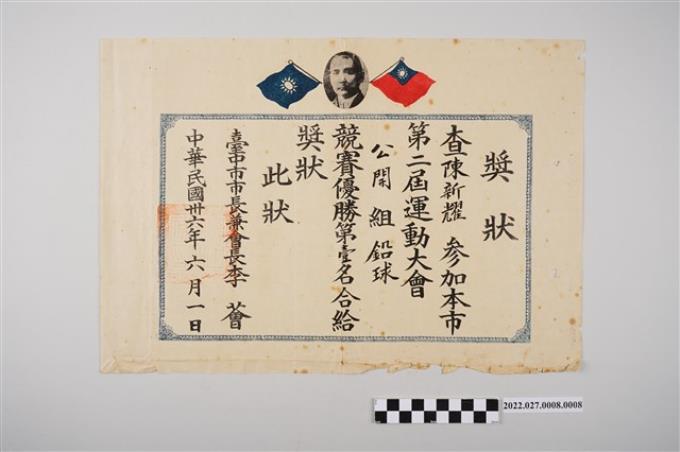 獎狀
查陳新耀 參加本市
第二屆運動大會
公開組鉛球
競賽優勝第壹名合給
獎狀
此狀
臺中市市長兼會長李薈
中華民國卅六年六月一日
2022.027.0008.0008